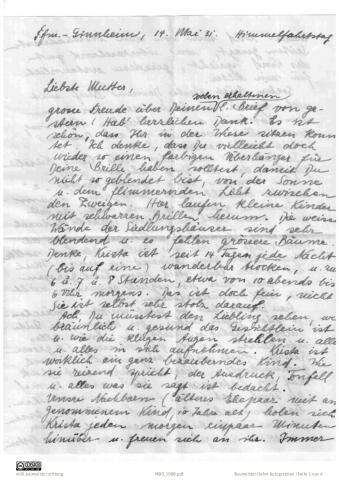 Ffm.-Ginnheim, 14. Mai 31. Himmelfahrtstag
Liebste Mutter,
soeben erhaltenen
grosse Freude über Deinen Brief von ge-
stern! Hab' herrlichen Dank. Es ist
schön, dass Ihr in der Wiese sitzen konn-
tet. Ich denke, dass Du vielleicht doch
wieder so einen farbigen Überhänger für
Deine Brille haben solltest, damit Du
nicht so geblendet bist, von der Sonne
u. dem flimmernden Licht zwischen
den Zweigen. Hier laufen kleine Kinder
mit schwarzen Brillen herum. Die weissen
Wände der Siedlungshäuser sind sehr
blendend u. es fehlen grössere Bäume.
Denke, Krista ist seit 14 Tagen jede Nacht
(bis auf eine) wunderbar trocken, u. zw.
6 à 7 à 8 Stunden, etwa von 10 abends bis
6 Uhr morgens. Das ist doch fein, nicht
Sie ist selbst sehr stolz darauf.
Ach, Du müsstest den Liebling sehen, wie
bräunlich u. gesund das Gesichtlein ist
u. wie die klugen Augen strahlen u. alles
u. alles in sich aufnehmen. Krista ist
wirklich ein ganz bezauberndes Kind. Wie
sie reizend spricht, der Ausdruck, Tonfall
u. alles was sie sagt ist bedacht.
Unsre Nachbarn (älteres Ehepaar mit an-
genommenem Kind, 10 Jahre alt) holen sich
Krista jeden morgen ein paar Minuten
hinüber u. freuen sich an ihr. Immer
willi baumeister stiftung
Baumeister-Dehm Autographen | Seite 1 von 4